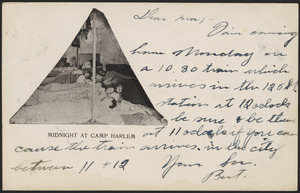 Dear ma;
I'm coming
home Monday on
a 10.30 train which
arrives in the 125th
station at 12 oclock
be sure & be there
MIDNIGHT AT CAMP HARLEM
at 11 oclock if you can
cause the train arrives in the city
between 11 + 12
Your Son.
Bert.